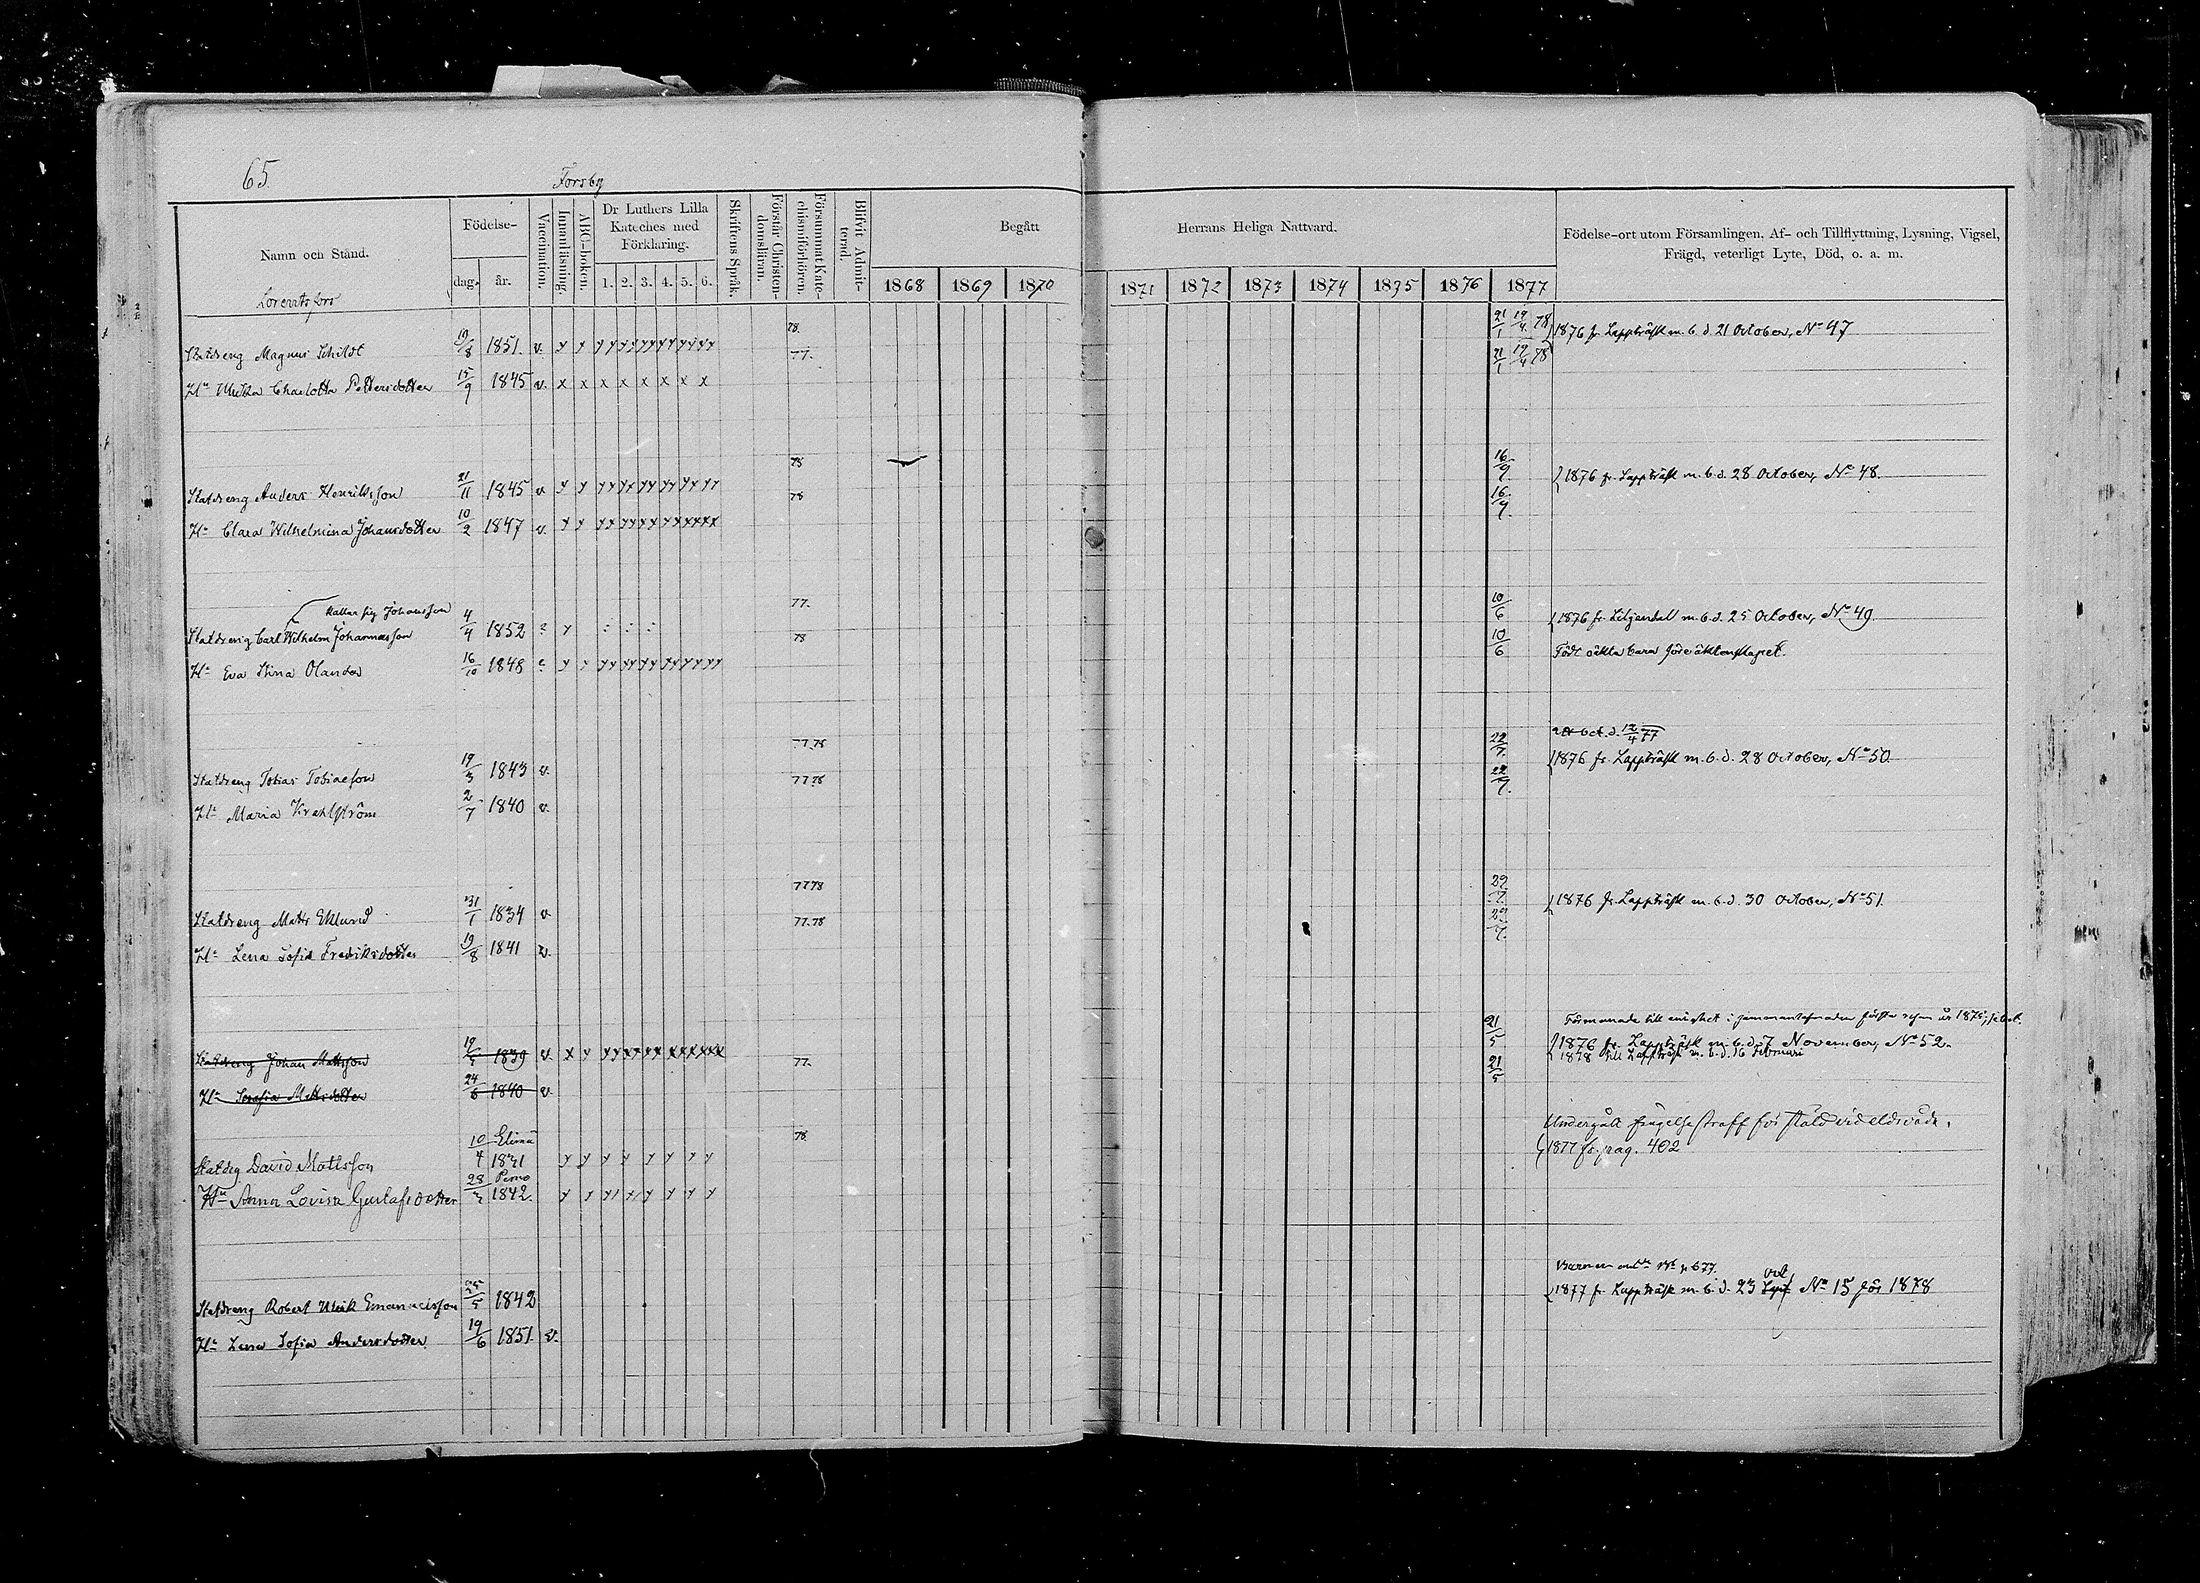 65.
Forsby
Namn och Stånd.
Födelse-
dag.
år.
Vaccination.
Innanläsning.
ABC-boken.
Dr Luthers Lilla
Kateches med
Förklaring.
1. 2. 3. 4. 5. 6.
Skriftens Språk.
Förstår Christen-
domsläran.
Försummat Kate-
chismiförhören.
Blifvit Admit-
terad.
Begått
Herrans Heliga Nattvard.
1868 1969 1870
1871 1872 1873 1874 1875 1876 1877
Födelse-ort utom Församlingen, Af- och Tillflyttning, Lysning, Vigsel,
Frägd, veterligt Lyte, Död, o. a. m.
Statdreng Magnus Schildt 19/8 1851. v. 78. 21/1 19/4 78 1876 fr. Lappträsk m. b. d. 21 October, No 47
Hu Ulrika Charlotta Pettersdotter 15/9 1845 v. x x x x x x x x 77. 21/1 19/4 78
Statdreng Anders Henriksson 21/11 1845 v 78 16/9 1876 fr. Lappträsk m. b. d. 28 October, No 48.
Hu Clara Wilhelmina Johansdotter 10/2 1847 v. 78 16/9.
kallar sig Johansson
Statdreng Carl Wilhelm Johannesson 4/4 1852 77. 10/6 1876 fr. Liljendal m. b. d. 25 October, No 49.
Hu Eva Stina Olander 16/10 1848 78 10/6
12/4 77
Statdreng Tobias Tobiaeson 19/3 1843 v. 77.78 22/7. 1876 fr. Lappträsk m. b. d. 28 October, No 50
Hu Maria 2/7 1840 v. 77.78 22/7.
Statdreng Matts Eklund 31/1 1834 v. 77 78 29/7. 1876 fr. Lappträsk m. b. d. 30 October, No 51.
Hu Lena Sofia Fredriksdotter 19/8 1841 v. 77.78 29/7.
Statdreng Johan Mattsson 19/5 1839 v. 21/5 1876 fr. Lappträsk m. b. d. 7 November, No 52.
1878 till Lappträsk m. b. d. 16 Februari
Hu Serafia Mattsdotter 24/6 1840 v. 77. 21/5
Elimä
David Mattsson 10/4 78. 1877 fr. pag. 402
Perno
Hu Anna Lovisa Gustafsdotter 1842
Statdreng Robert Ulrik Emanuelsson 25/5 1842 1877 fr. Lappträsk m. b. d. 23 oct No 15 för 1878
Hu Lena Sofia Andersdotter 19/6 1851. v.